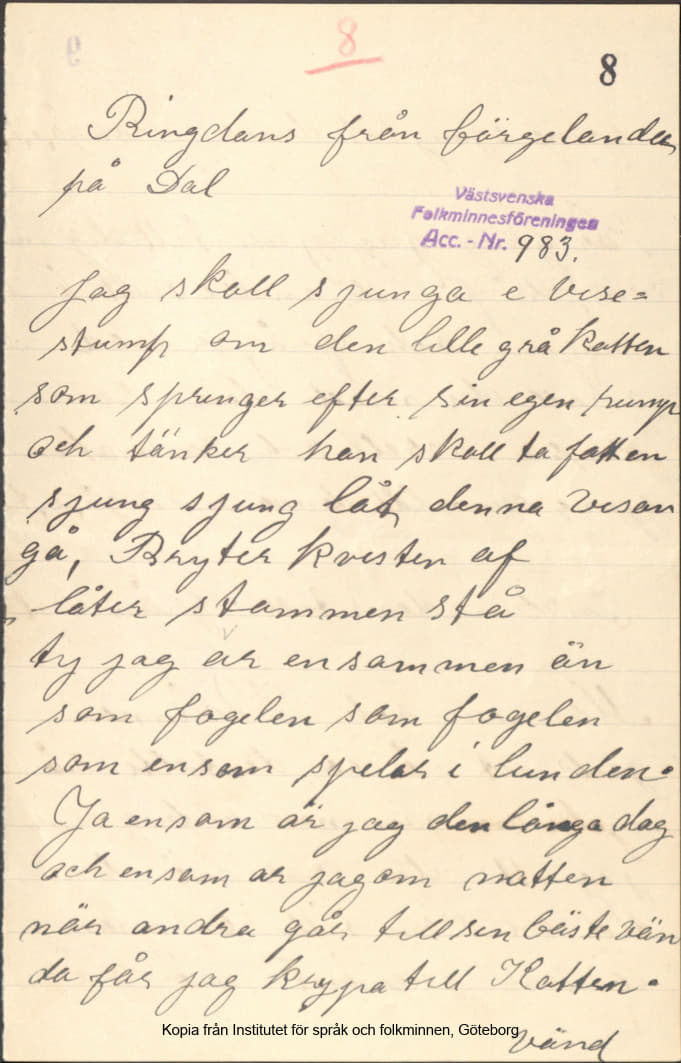 8
8
Ringdans från färgelanda
på Dal
Västsvenska
Folkminnesföreningen
Acc.-Nr. 983.
Jag skall sjunga e Vise=
stump om den lille grå Katten
som springer efter sin egen rump
och tänker han skall ta fatt en
sjung sjung låt denna Visan
gå, Bryter kvisten af
låter stammen stå
ty jag är ensammen än
som fogelen som fogelen
som ensam spelar i lunden.
Ja ensam är jag den långa dag
och ensam ar jag om natten
när andra går till sin bäste vän
da får jag krypa till Katten.
Kopia från Institutet för språk och folkminnen, Göteborg
Vänd